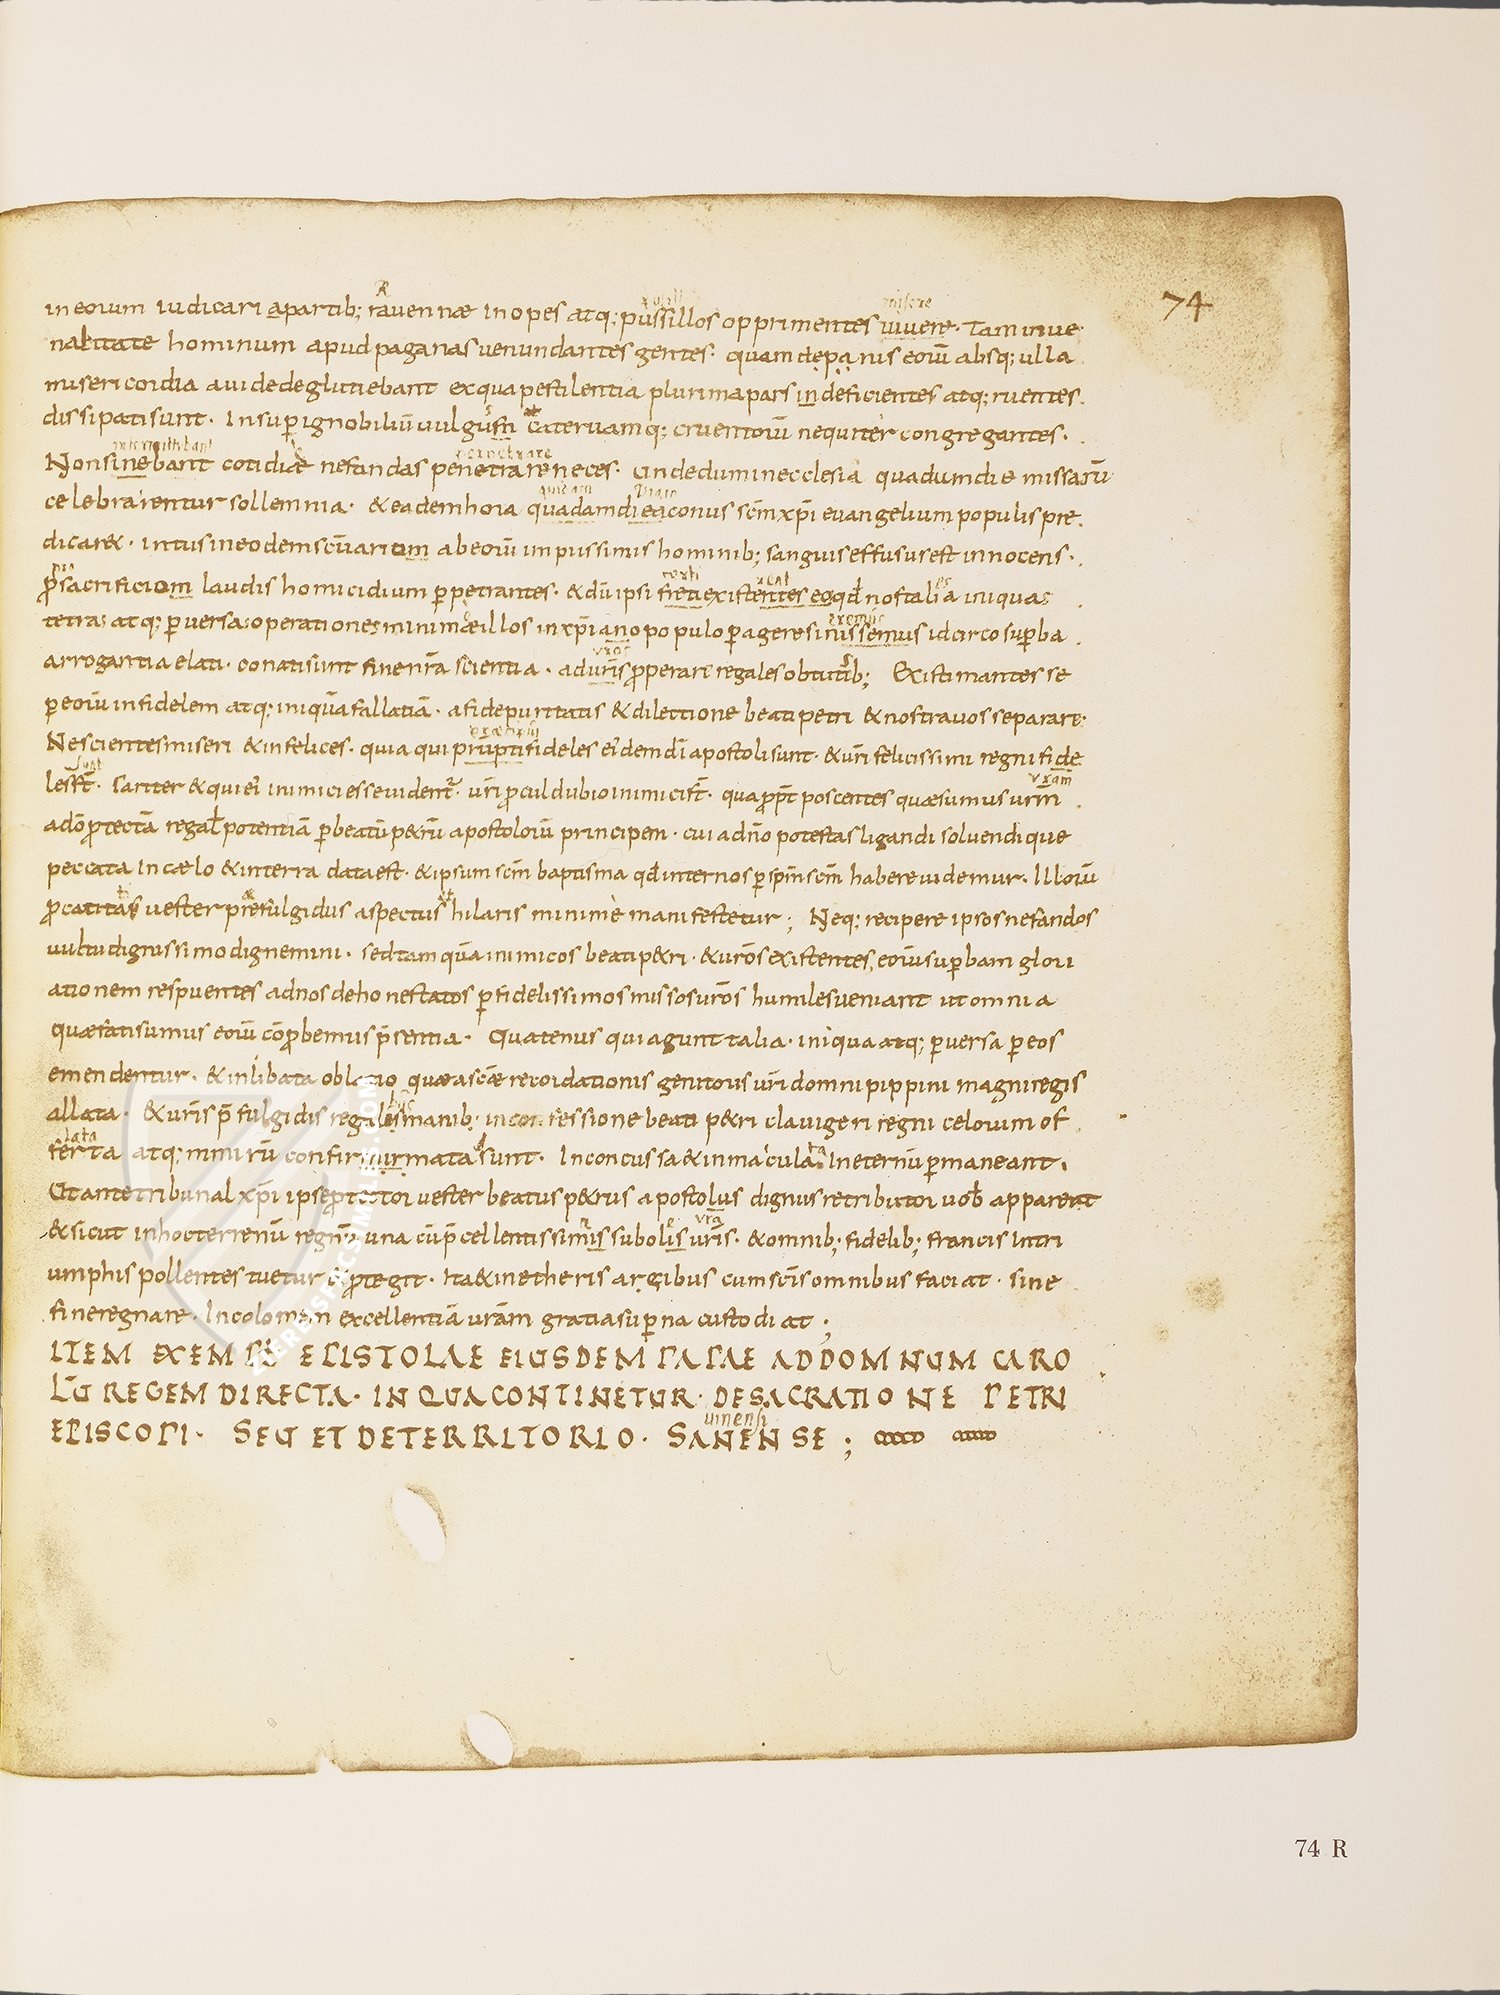 74
in eorum iudicari a partib; ravennæ inopes atq; pussillos opprimentes vivere · Tam in ve
nalitate hominum apud paganas venundantes gentes · quam depa nis eorū absq; ulla
misericordia avide deglutiebant ex qua pestilentia plurima pars in deficientes atq; ruentes ·
dissipati sunt · Insup ignobiliū vulgūm catervamq; cruentorū nequiter congregantes ·
Non sinebant cotidiæ nefandas penetrare neces · Unde dum in ecclesia quadum die missarū
celebrarentur sollemnia · & eadem hora quadam dieaconus scm̄ xp̄i evangelium populis pre
dicar& · intus in eodem scūariom ab eorū impiissimis hominib; sanguis effusus est innocens ·
pro sacrificiom laudis homicidium ppetrantes · & dū ipsi freti existentes eo qd nostalia iniquas
tetras atq; pversas operationes minimæ illos in xp̄iano populo pagere sinissemus idcirco supba
arrogantia elati · conati sunt sine nr̄a scientia · ad uris properare regales obtutib; Existimantes se
p eorū infidelem atq; iniquā fallatiā · a fide puritatis & dilectione beati petri & nostra vos separare ·
Nescientes miseri & infelices · quia qui prupti fideles eidem dī apostoli sunt · & vr̄i felicissimi regni fide
les st̄ · Sariter & qui ei inimici esse videnť · vr̄i procul dubio inimici st̄ · qua ppt poscentes quæsumus urm̄
a dō protectā regal potentiā p beatū p&rū apostolorū principem · cui a dn̄o potestas ligandi solvendique
peccata in cælo & in terra data est · & ipsum scm̄ baptisma qd inter nos p spm̄ scm̄ habere videmur · Illorū
procatitas vester prefulgidus aspectus hilaris minime manifestetur ; Neq; recipere ipsos nefandos
vultu dignissimo dignemini · sed tam quā inimicos beati p&ri · & vrōs existentes, eorū supbam glori
ationem respuentes ad nos dehonestatos p fidelissimos missos vrōs humiles veniant ut omnia
quæ fati sumus eorū cōprobemus p̄sentia · Quatenus qui agunt talia · iniqua atq; pversa p eos
emendentur · & inlibata oblatio quæ a scæ recordationis genitoris vr̄i domni pippini magni regis
allata · & vr̄is p̄fulgidis regalis manib; in confessione beati p&ri clavigeri regni celorum of
ferta atq; nimirū confirmurmata sunt · Inconcussa & inmacula Ineternū pmaneant ·
Ut ante tribunal xp̄i ipse protector vester beatus p&rus apostolus dignus retributor vob apparent
& sicut in hoc terrenū regnū una cū p̄cellentissimis subolis vr̄is · & omnib; fidelib; francis in tri
umphis pollentes tuetur & protegit · Ita & in etheris argibus cum scīs omnibus faciat · sine
fine regnare · Incolomen excellentiā vrām gratia supna custodiat ;
ITEM EXEMPL EPISTOLAE EIUSDEM PAPAE AD DOMNUM CARO
LU REGEM DIRECTA · IN QUA CONTINETUR · DE SACRATIONE PETRI
EPISCOPI · SEU ET DE TERRITORIO · SANENSE ;
74 R
ZIERERSFACSIMILE.COM